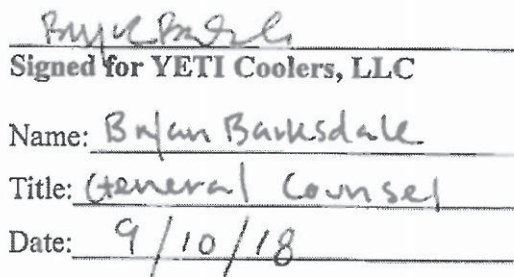 Signed for YETI Coolers, LLC
Name: Bryan Barksdale
Title: General Counsel
Date: 9/10/18